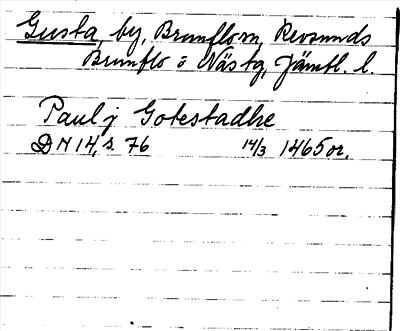 Gusta, by, Brunflo sn, Revsunds
Brunflo o Näs tg, Jämtl. l.
Paul j Gotestadhe
DN 14, s. 76 14/3 1465 or.